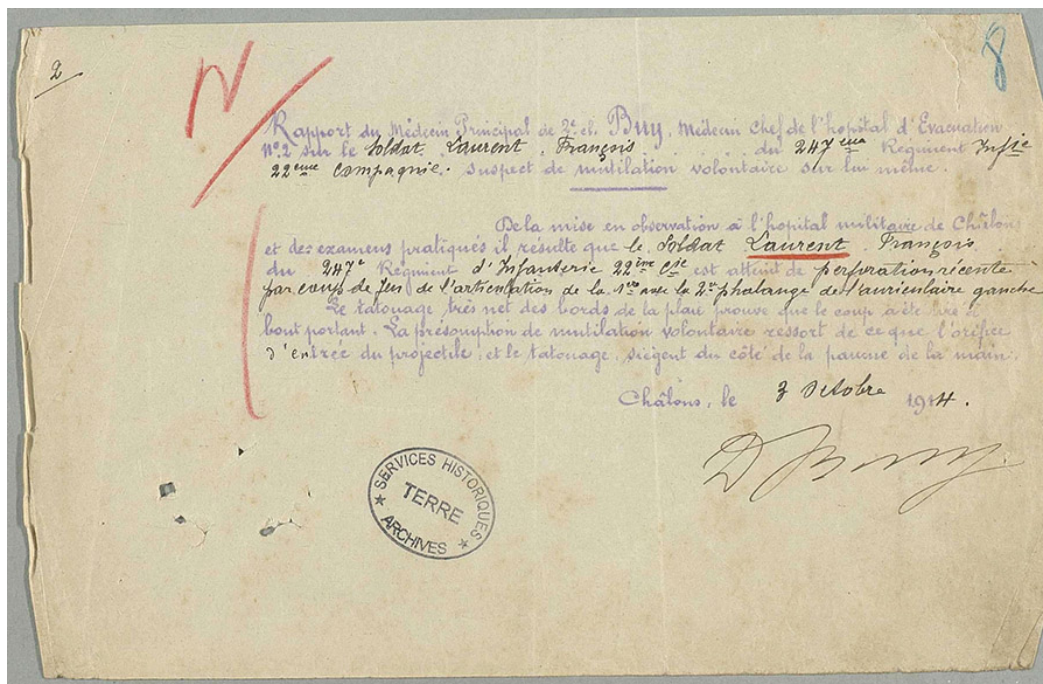 2
8
Rapport du Médecin Principal de 2e cl. Buy, Médecin Chef de l'hopital d'Evacuation
N°2 sur le Soldat Laurent François du 247ème Regiment Infie
22ème Compagnie. suspect de mutilation volontaire sur lui même.
De la mise en observation à l'hopital militaire de Châlons
et des examens pratiqués il résulte que le Soldat Laurent François
du 247e Regiment d'Infanterie 22ème Cie est atteint de perforation récente
par coup de feu de l'articulation de la 1re avec la 2e phalange de l'auriculaire gauche
Le tatouage très net des bords de la plaie prouve que le coup a été tiré à
bout portant. La présomption de mutilation volontaire ressort de ce que l'orifice
d'entrée du projectile et le tatouage, siègent du côté de la paume de la main.
Châlons, le 3 Octobre 1914.
D Buy
SERVICES HISTORIQUES
TERRE
ARCHIVES